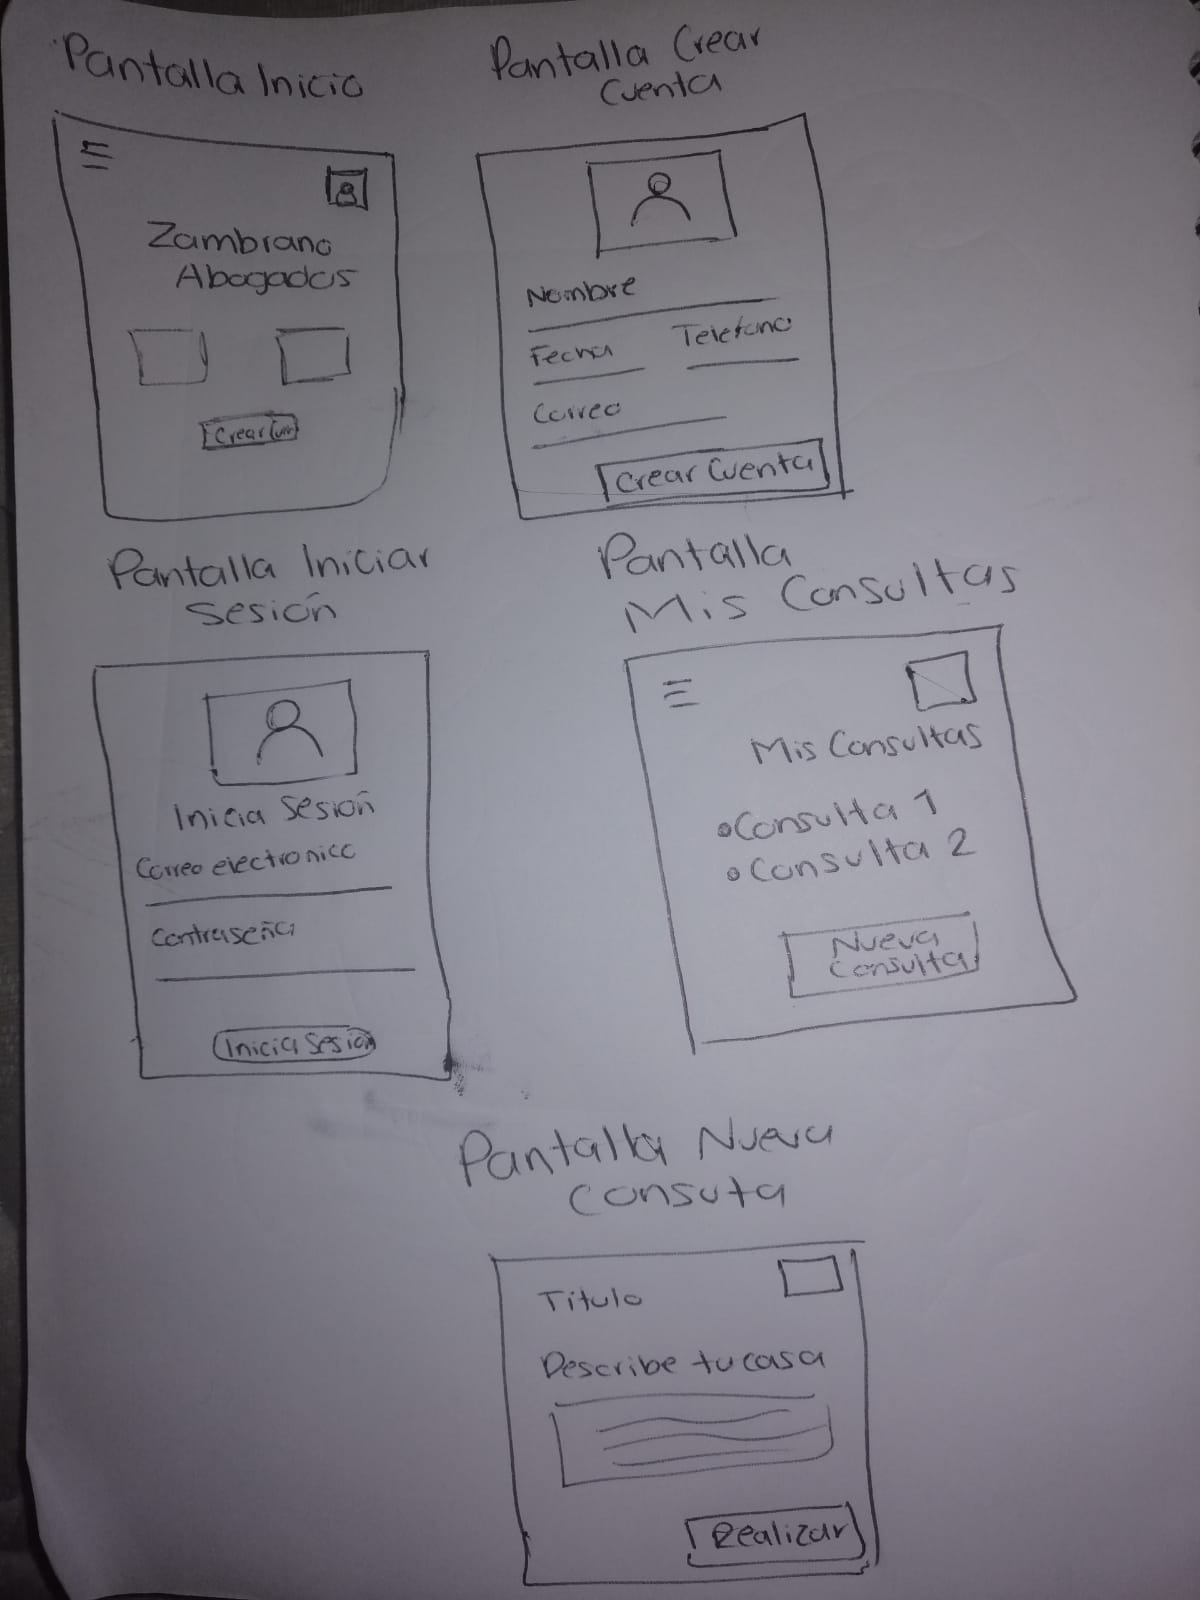 Pantalla Inicio
Zambrano
Abogados
Crear
Pantalla Crear
Cuenta
Nombre
Fecha Telefono
Correo
Crear Cuenta
Pantalla Iniciar
Sesión
Inicia Sesión
Correo electronico
Contraseña
Inicia Sesion
Pantalla
Mis Consultas
Mis Consultas
Consulta 1
Consulta 2
Nueva
Consulta
Pantalla Nueva
Consuta
Titulo
Describe tu casa
Realizar